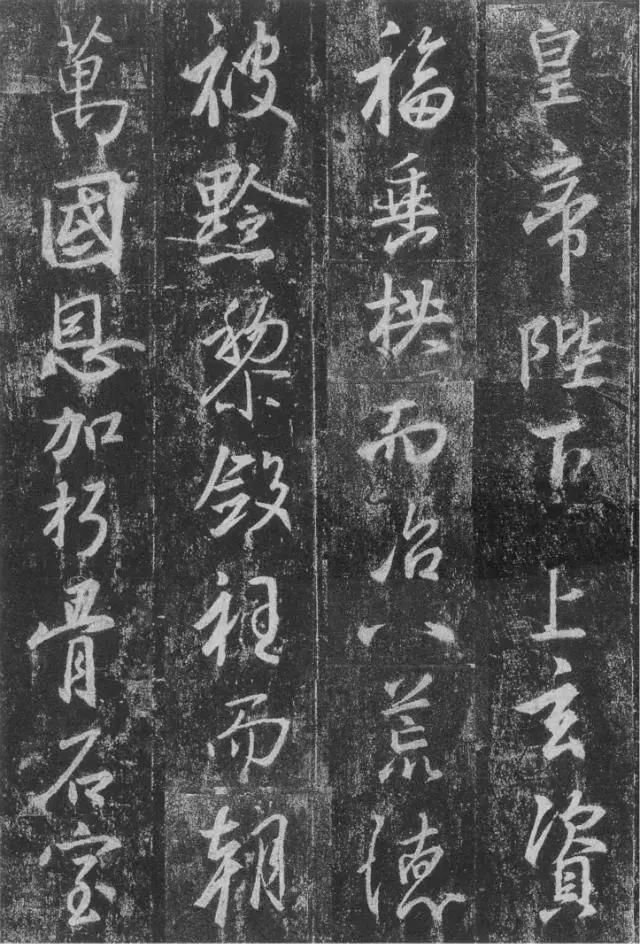 皇帝陛下上玄資
福垂拱而治八荒德
被黔黎斂衽而朝
萬國恩加朽骨石室